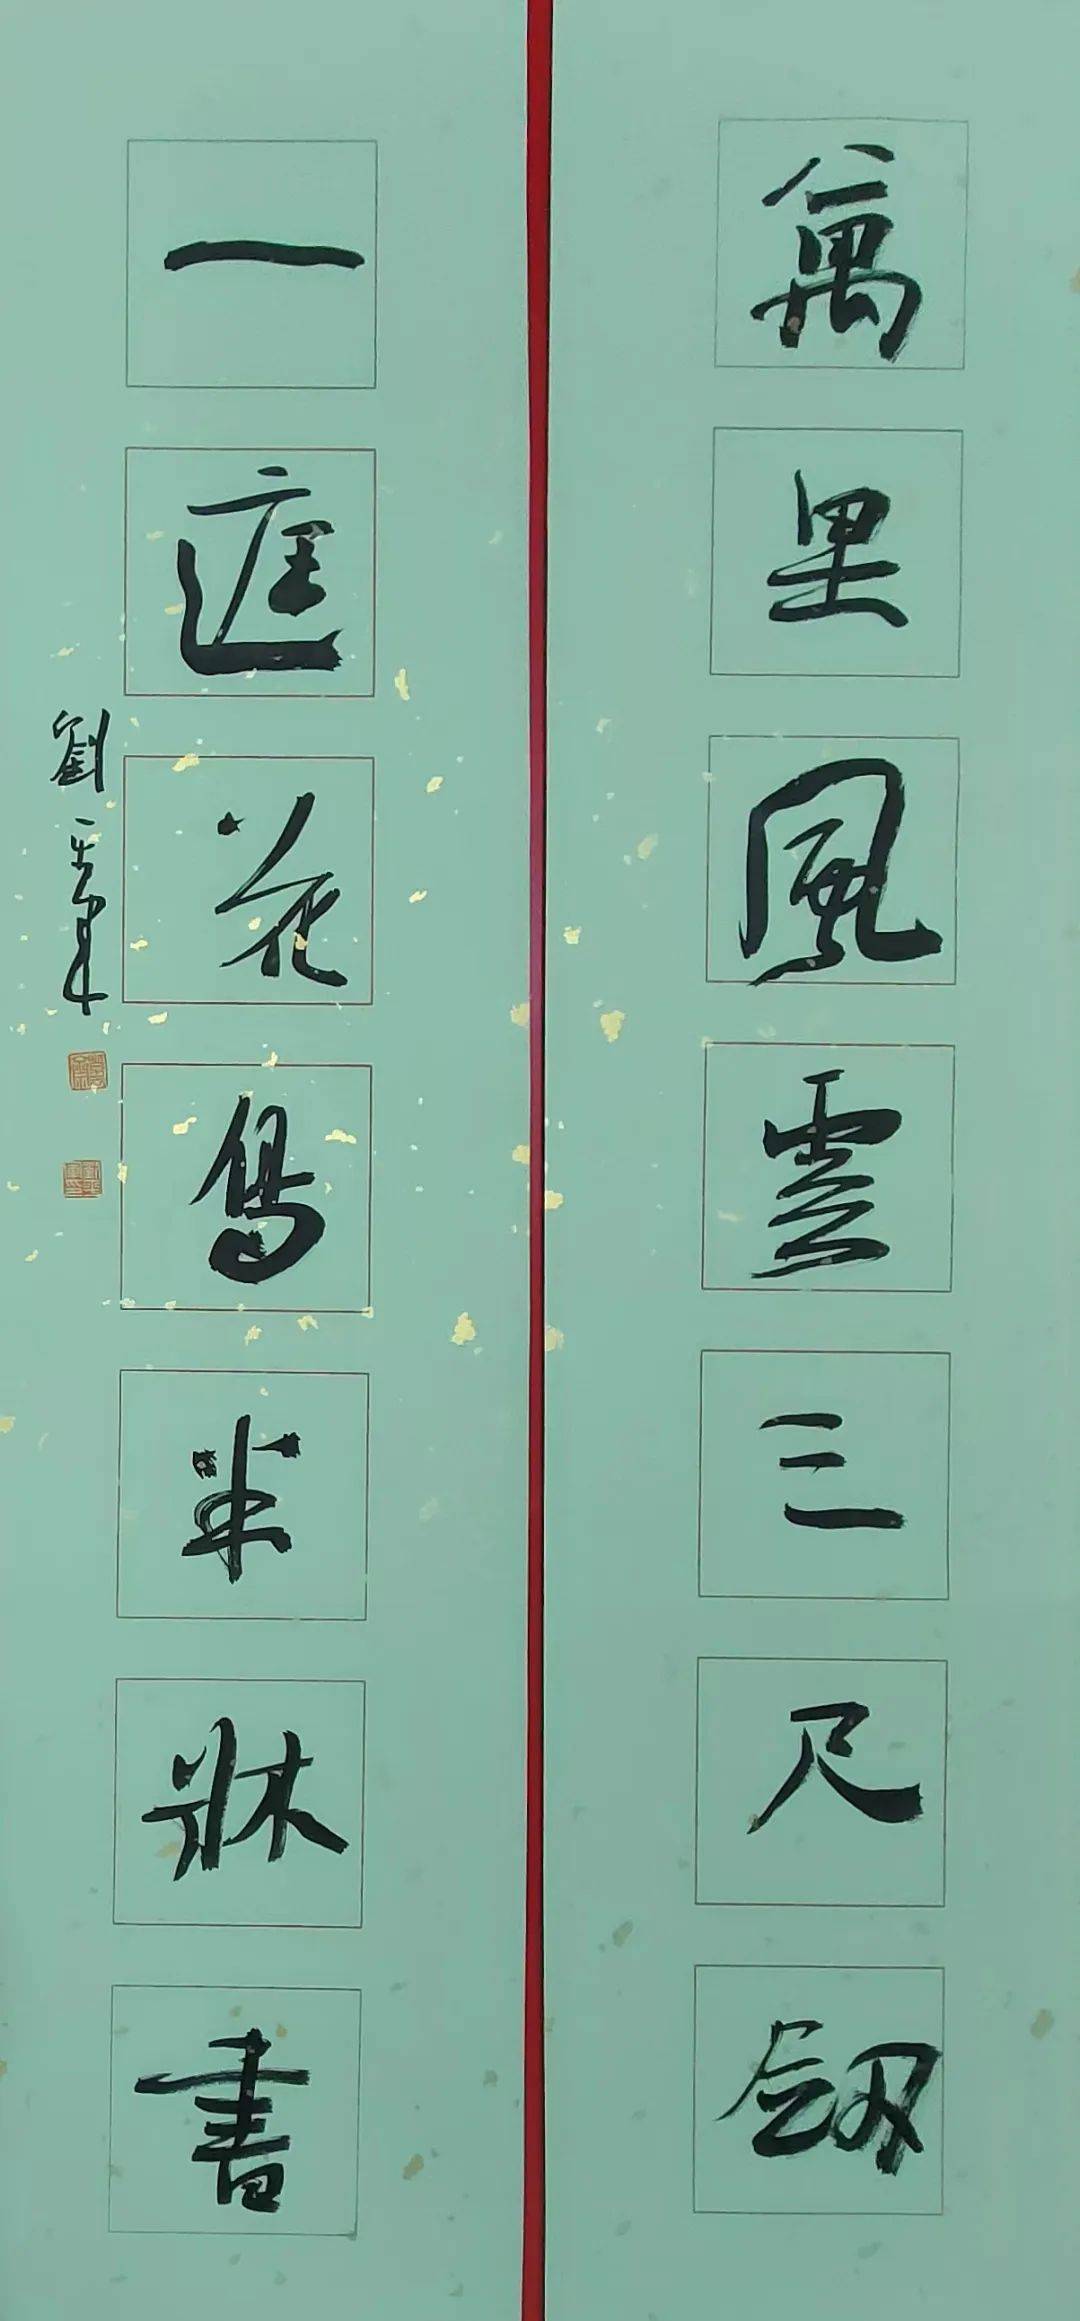 萬里風雲三尺劍
一庭花鳥半牀書
劉